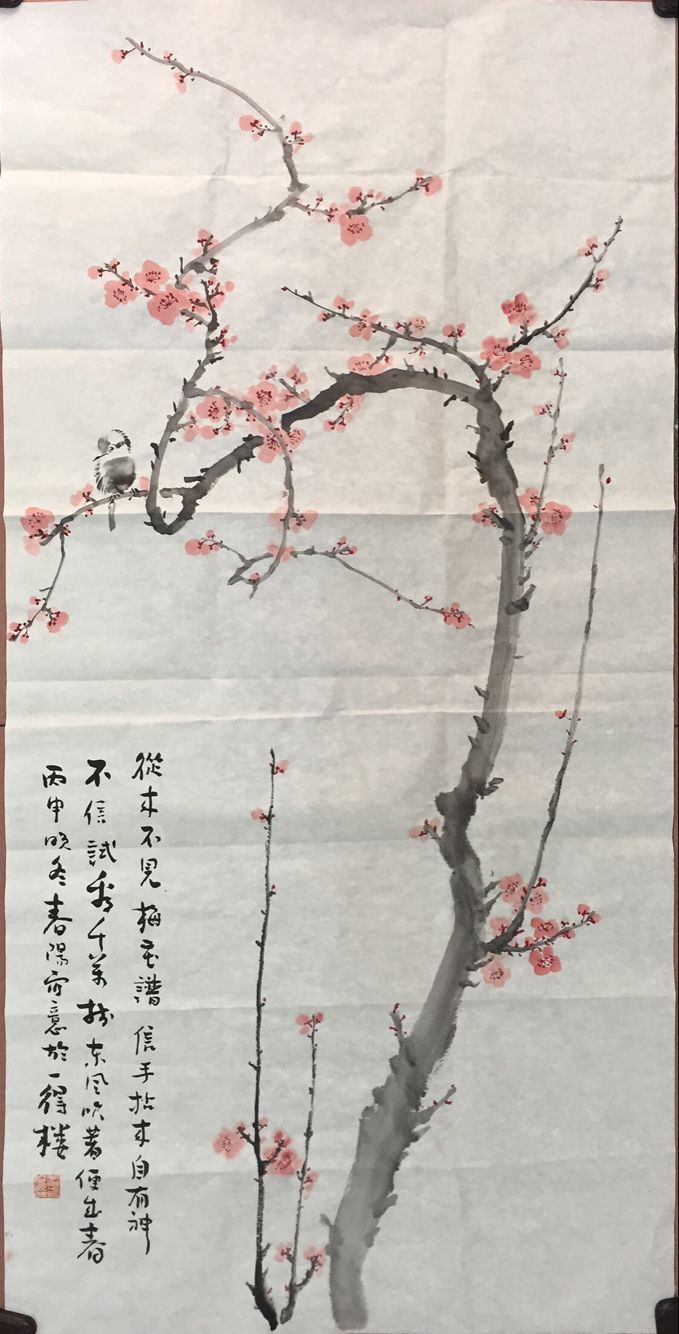 從來不見梅花譜信手拈來自有神
不信試看千萬樹東風吹著便成春
丙申晚冬春陽寫意於一得樓